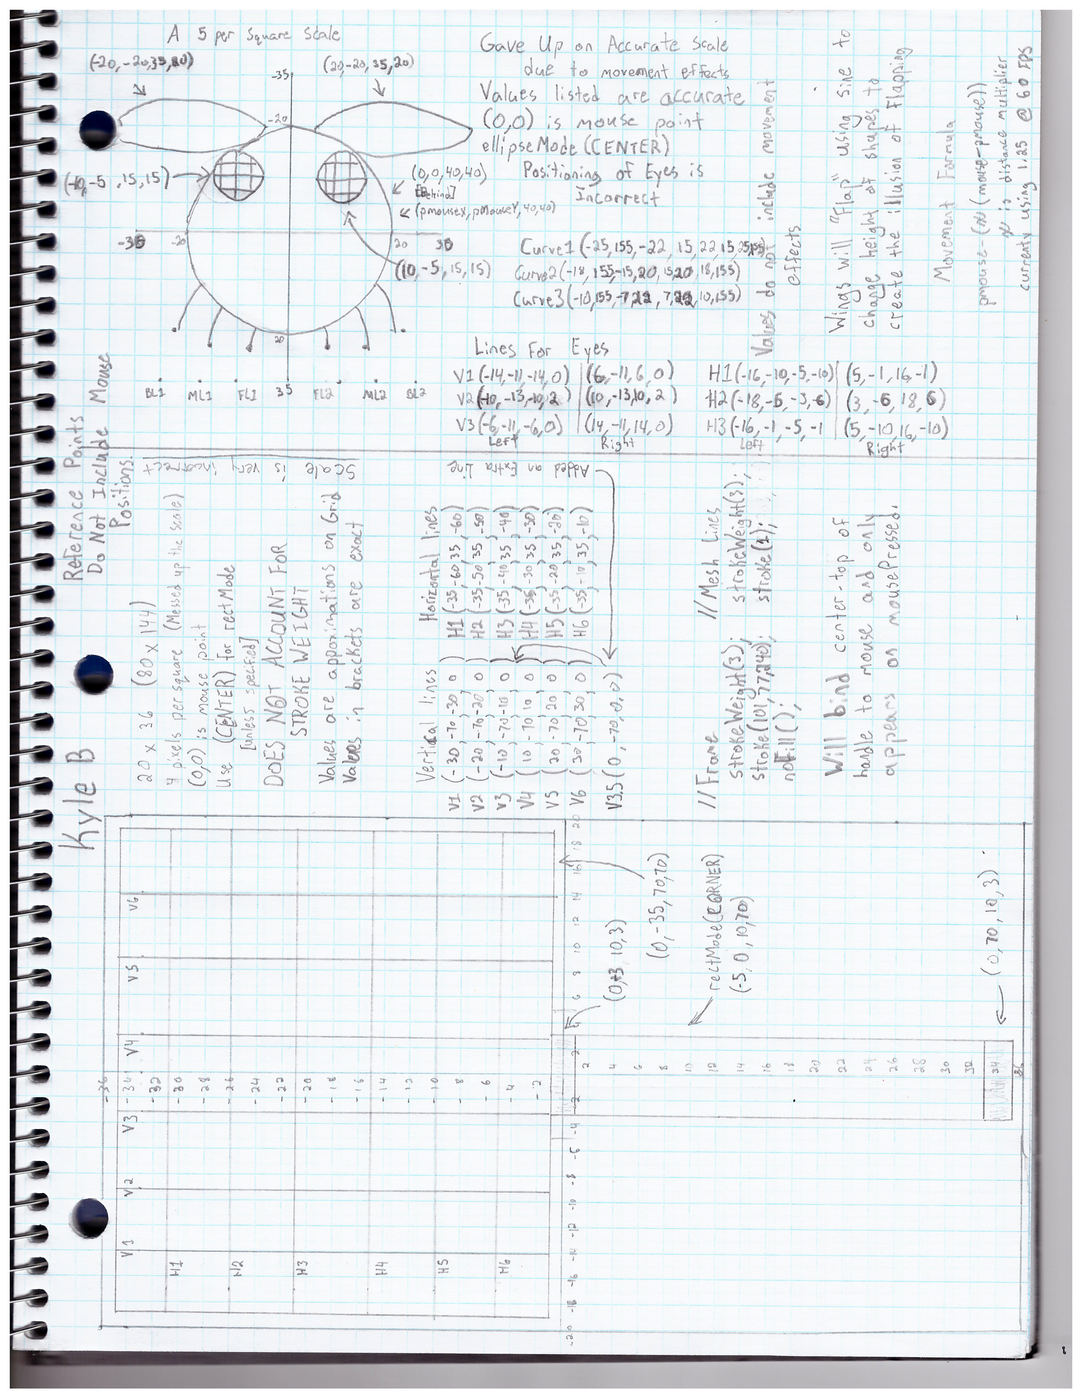 A 5 per Square Scale
(-20,-20,35,20)
(20,-20,35,20)
-35
-20
(-10,-5,15,15)
(0,0,40,40)
[Behind]
(pmouseX,pMouseY,40,40)
-35
-20
20
35
(10,-5,15,15)
35
BL1
ML1
FL1
35
FL2
ML2
BL2
Gave Up on Accurate Scale
due to movement effects
Values listed are accurate
(0,0) is mouse point
ellipseMode(CENTER)
Positioning of Eyes is
Incorrect
Curve1(-25,155,-22,15,22,15,25,155)
Curve2(-18,155,-15,20,15,20,18,155)
Curve3(-10,155,-7,22,7,22,10,155)
Values do not include movement
effects
Wings will "Flap" using Sine to
change height of shapes to
create the illusion of Flapping
Movement Formula
pmouse-(x(mouse-pmouse))
x is distance multiplier
currently using 1.25 @ 60 FPS
Lines For Eyes
V1(-14,-11,-14,0)
(6,-11,6,0)
H1(-16,-10,-5,-10)
(5,-1,16,-1)
V2(-10,-13,-10,2)
(10,-13,10,2)
H2(-18,-6,-3,-6)
(3,-6,18,6)
V3(-6,-11,-6,0)
(14,-11,14,0)
H3(-16,-1,-5,-1
(5,-10,16,-10)
Left
Right
Left
Right
Kyle B
Reference Points
Do Not Include Mouse
Positions.
Scale is very incorrect
Added an Extra Line
20 x 36 (80 x 144)
4 pixels per square (Messed up the scale)
(0,0) is mouse point
Use (CENTER) for rectMode
[unless specified]
DOES NOT ACCOUNT FOR
STROKE WEIGHT
Values are approximations on Grid
Values in brackets are exact
Vertical lines
V1 (-30,-70,-30,0)
V2 (-20,-70,-20,0)
V3 (-10,-70,-10,0)
V4 (10,-70,10,0)
V5 (20,-70,20,0)
V6 (30,-70,30,0)
V3.5(0,-70,0,0)
Horizontal lines
H1 (-35,-60,35,-60)
H2 (-35,-50,35,-50)
H3 (-35,-40,35,-40)
H4 (-35,-30,35,-30)
H5 (-35,-20,35,-20)
H6 (-35,-10,35,-10)
//Frame
strokeWeight(3);
stroke(101,77,240);
noFill();
//Mesh Lines
strokeWeight(3);
stroke(1);
Will bind center-top of
handle to mouse and only
appears on mousePressed.
V1
V2
V3
V4
V5
V6
H1
H2
H3
H4
H5
H6
-36
-34
-32
-30
-28
-26
-24
-22
-20
-18
-16
-14
-12
-10
-8
-6
-4
-2
-20 -18 -16 -14 -12 -10 -8 -6 -4 -2 2 4 6 8 10 12 14 16 18 20
2
4
6
8
10
12
14
16
18
20
22
24
26
28
30
32
34
36
(0,-35,70,70)
rectMode(CORNER)
(-5,0,10,70)
(0,70,10,3)